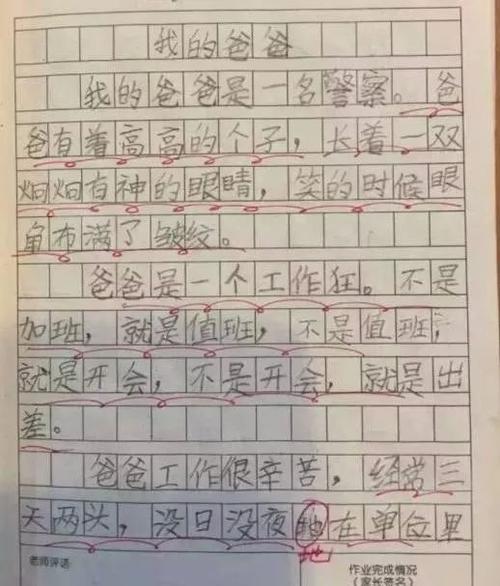 我的爸爸
我的爸爸是一名警察。爸
爸有着高高的个子，长着一双
炯炯有神的眼睛，笑的时候眼
角布满了皱纹。
爸爸是一个工作狂。不是
加班，就是值班，不是值班，
就是开会，不是开会，就是出
差。
爸爸工作很辛苦，经常三
天两头，没日没夜她在单位里
地
老师评语
作业完成情况
（家长签名）